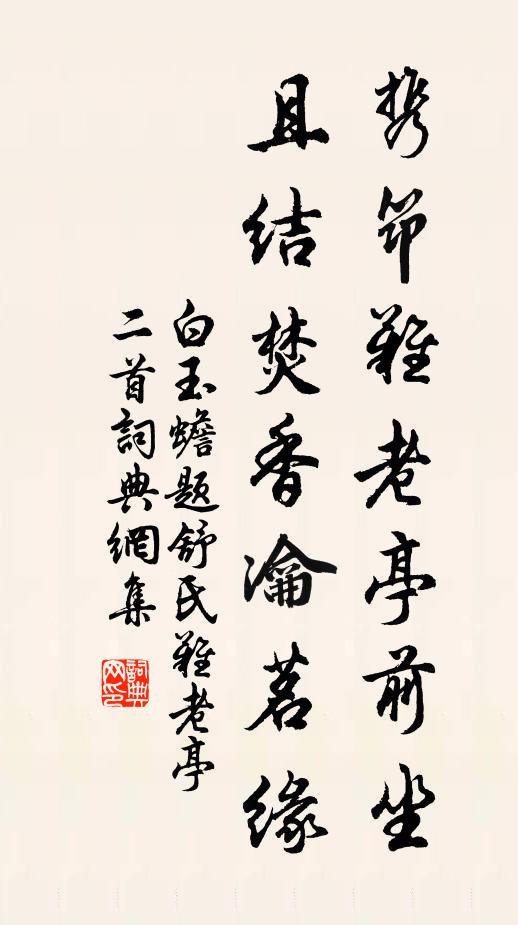 携筇难老亭前坐
且结焚香瀹茗缘
白玉蟾题舒氏难老亭
二首詞典網集
詞典网印